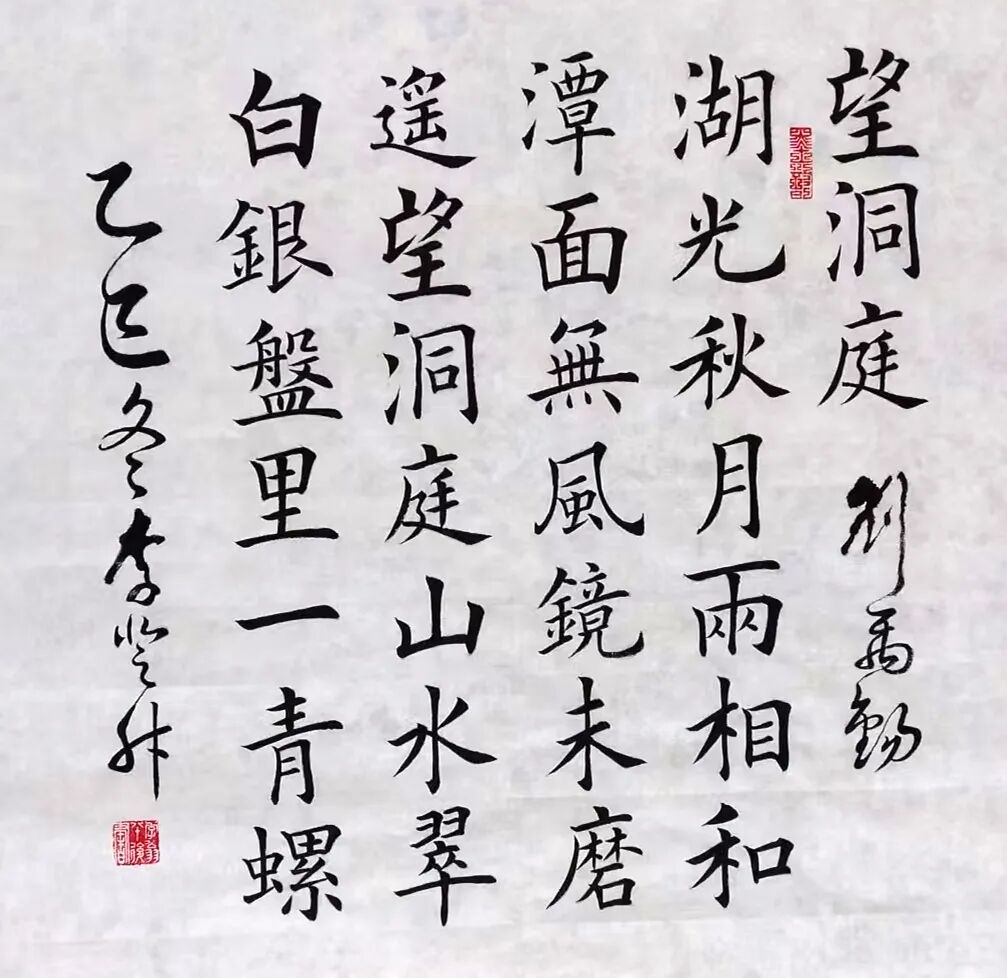 望洞庭 劉禹錫
湖光秋月兩相和
潭面無風鏡未磨
遥望洞庭山水翠
白銀盤里一青螺
乙巳冬李登升